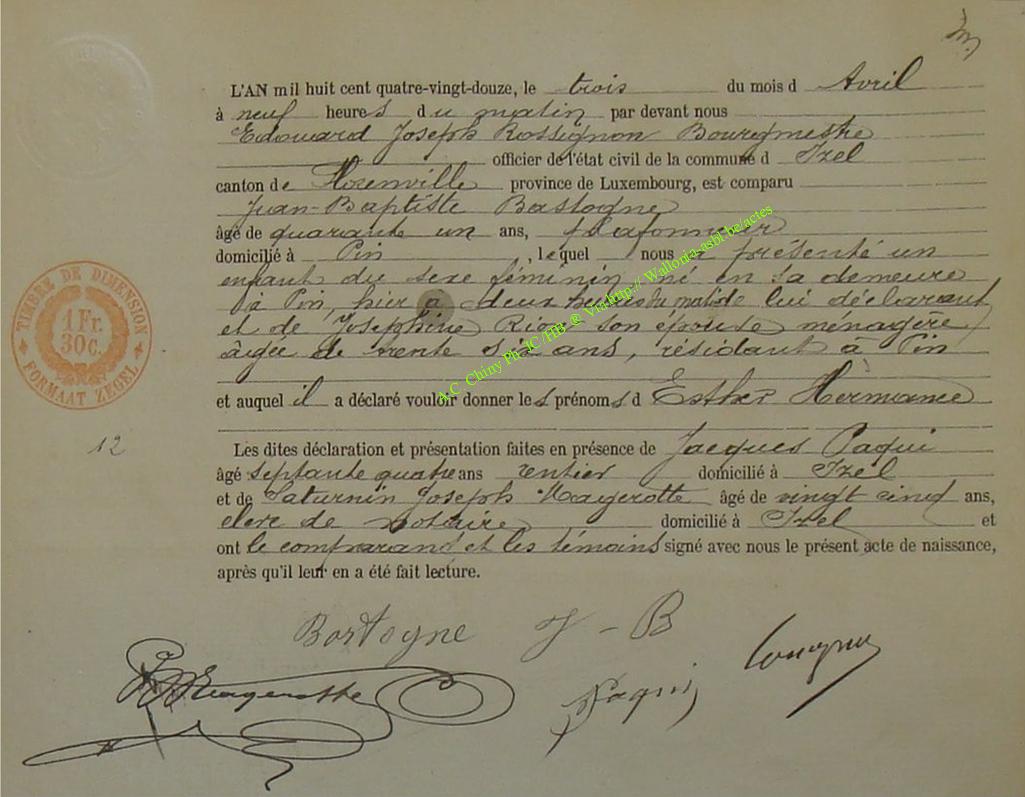 L'AN mil huit cent quatre-vingt-douze, le trois du mois d Avril
à neuf heures du matin par devant nous
Edouard Joseph Rossignon Bourgmestre
officier de l'état civil de la commune d Izel
canton de Florenville province de Luxembourg, est comparu
Jean-Baptiste Bastogne
âgé de quarante un ans, plafonneur
domicilié à Pin, lequel nous a présenté un
enfant du sexe féminin, né en sa demeure
à Pin, hier à deux heures du matin de lui déclarant
et de Joséphine Rion son épouse ménagère,
âgée de trente six ans, résidant à Pin
et auquel il a déclaré vouloir donner les prénoms d Esther Hermance
Les dites déclaration et présentation faites en présence de Jacques Paqui
âgé septante quatre ans rentier domicilié à Izel
et de Saturnin Joseph Mayerotte âgé de vingt cinq ans,
clerc de notaire domicilié à Izel et
ont le comparant et les témoins signé avec nous le présent acte de naissance,
après qu'il leur en a été fait lecture.
Bastogne J-B
Mayerotte
Paqui
TIMBRE DE DIMENSION
1 Fr.
30 c.
FORMAAT ZEGEL
12
A.C. Chiny Ph. JC /HB ® Via http:// Wallonia-asbl.be/actes